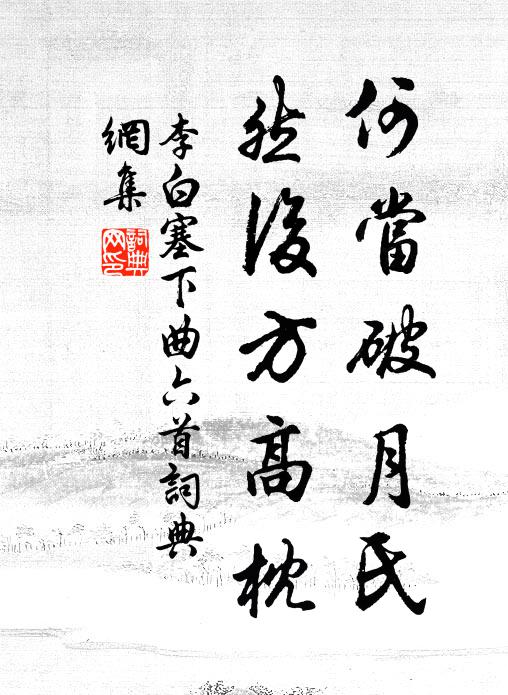 何當破月氏
然後方高枕
李白塞下曲六首詞典
網集
詞典網印